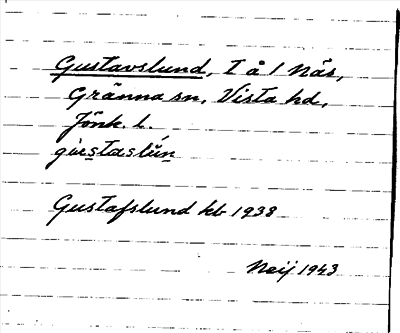 Gustavslund, t å 1 Näs,
Gränna sn, Vista hd,
Jönk. l.
gùstaslún
Gustafslund kb 1938
Neij 1943